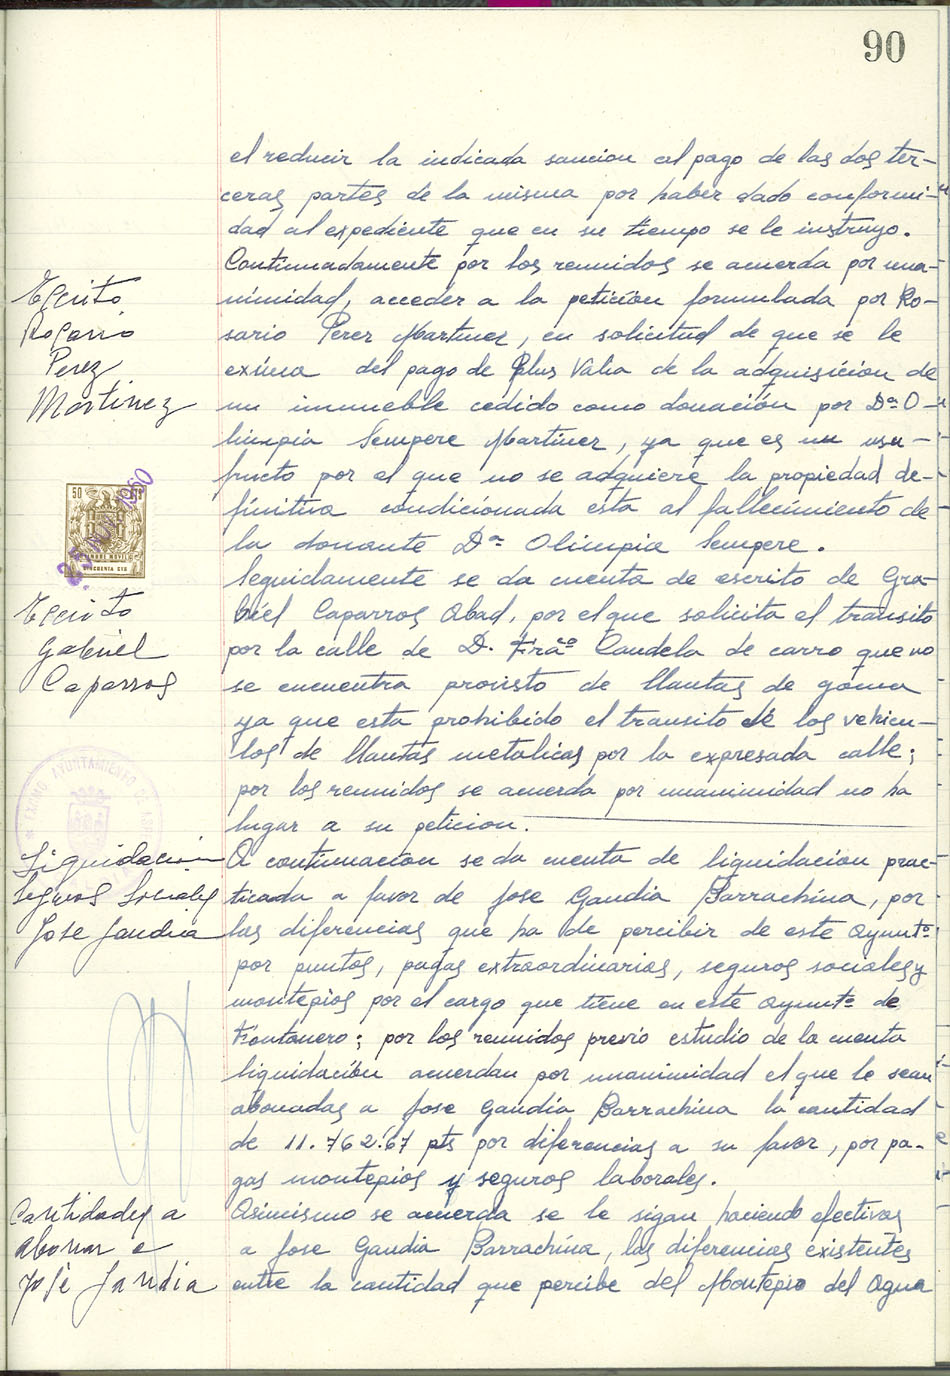 90
el reducir la indicada sancion al pago de las dos ter-
ceras partes de la misma por haber dado conformi-
dad al expediente que en su tiempo se le instruyo.
Continuadamente por los reunidos se acuerda por una-
Escrito
Rosario
Perez
Martinez
nimidad, acceder a la petición formulada por Ro-
sario Perez Martinez, en solicitud de que se le
exima del pago de Plus Valia de la adquisición de
un inmueble cedido como donación por Dª O-
limpia Sempere Martinez, ya que es un usu-
fructo por el que no se adquiere la propiedad de-
finitiva condicionada esta al fallecimiento de
la donante Dª Olimpia Sempere.
50 CTS
25 NOV 1960
TIMBRE MOVIL
CINCUENTA CTS
Seguidamente se da cuenta de escrito de Gra-
Escrito
Gabriel
Caparros
briel Caparros Abad, por el que solicita el transito
por la calle de D. Franco Candela de carro que no
se encuentra provisto de llantas de goma
ya que esta prohibido el transito de los vehicu-
los de llantas metalicas por la expresada calle;
por los reunidos se acuerda por unanimidad no ha
lugar a su peticion.
EXCMO AYUNTAMIENTO DE
Liquidación
Seguros Sociales
Jose Gandia
A continuacion se da cuenta de liquidacion prac-
ticada a favor de Jose Gandia Barrachina, por
las diferencias que ha de percibir de este Ayuntº
por puntos, pagas extraordinarias, seguros sociales y
montepios por el cargo que tiene en este Ayuntº de
Fontanero; por los reunidos previo estudio de la cuenta
liquidación acuerdan por unanimidad el que le sean
abonadas a Jose Gandia Barrachina la cantidad
de 11.762'67 pts por diferencias a su favor, por pa-
gas montepios y seguros laborales.
Cantidades a
abonar a
José Gandia
Asimismo se acuerda se le sigan haciendo efectivas
a Jose Gandia Barrachina, las diferencias existentes
entre la cantidad que percibe del Montepio del Agua